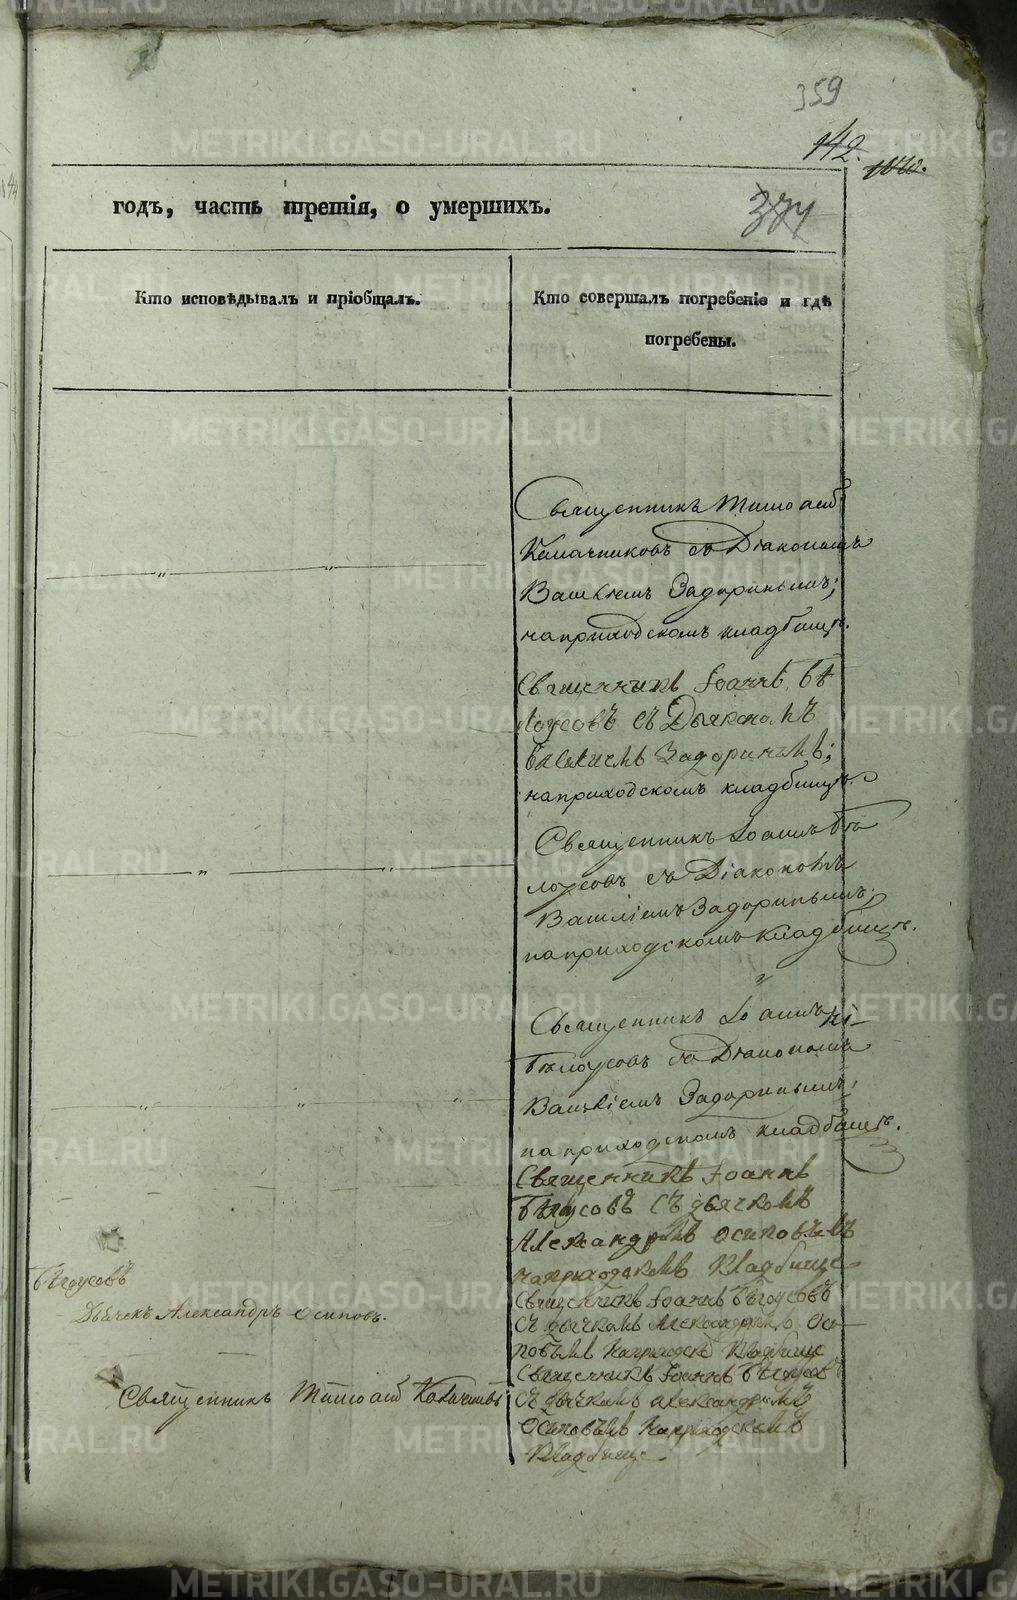 359
142.
годъ, часть третія, о умершихъ.
Кто исповѣдывалъ и пріобщалъ.
Кто совершалъ погребеніе и гдѣ
погребены.
Священникъ
съ Діакономъ
Василіемъ Задоринымъ;
на приходскомъ кладбищѣ.
Священникъ Іоаннъ Бѣ
лоусовъ съ Дьякономъ
Василіемъ Задоринымъ;
на приходскомъ кладбищѣ.
Священникъ Іоаннъ Бѣ
лоусовъ съ Діакономъ
Василіемъ Задоринымъ;
на приходскомъ кладбищѣ.
Священникъ Іоаннъ
Бѣлоусовъ съ Діакономъ
Василіемъ Задоринымъ;
на приходскомъ кладбищѣ.
Священникъ Іоаннъ
Бѣлоусовъ съ дьячкомъ
Александромъ Осиповымъ
на приходскомъ кладбище
Бѣлоусовъ
Дьячекъ Александръ Осиповъ.
Священникъ Іоаннъ Бѣлоусовъ
съ дьячкомъ Александромъ Оси
повымъ кладбище
Священникъ Іоаннъ Бѣлоусовъ
Священникъ
съ дьячкомъ Александромъ
Осиповымъ на приходскомъ
кладбище
METRIKI.GASO-URAL.RU